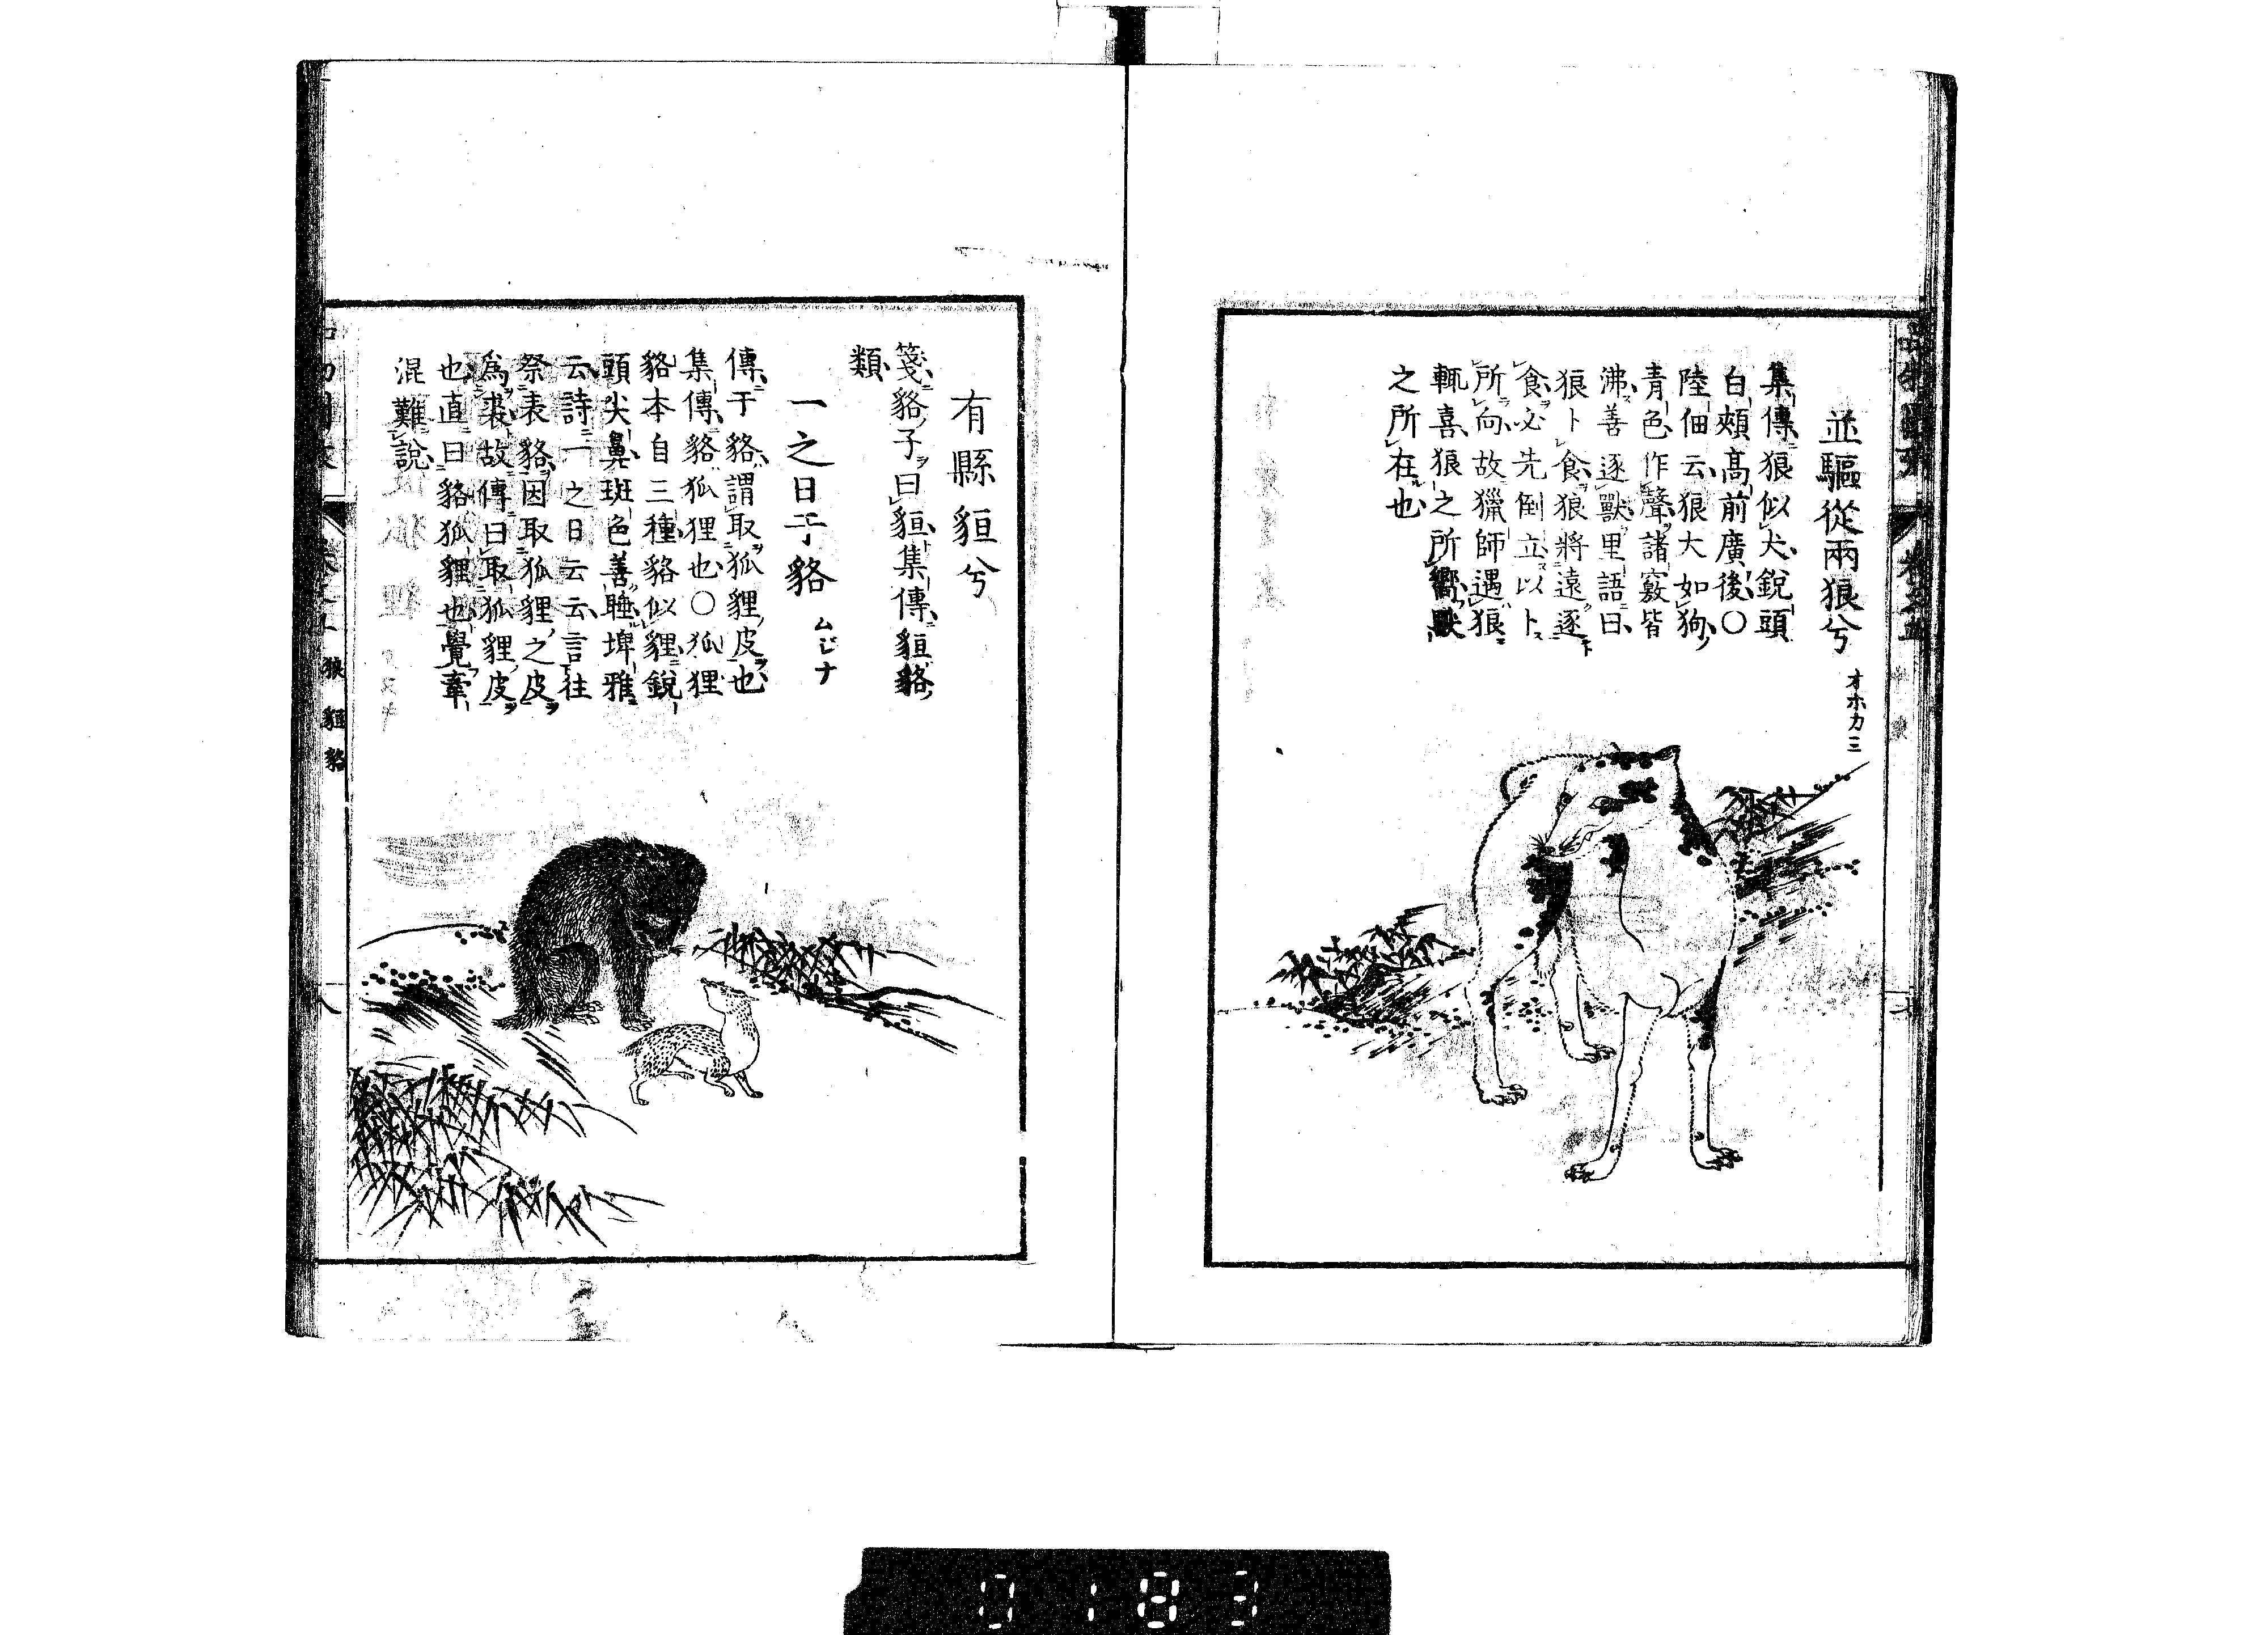 並驅從兩狼兮 オホカミ
集傳狼似犬銳頭
白頰高前廣後〇
陸佃云狼大如狗
青色作聲諸竅皆
沸善逐獸里語曰
狼卜食狼將遠逐
食必先倒立以卜
所向故獵師遇狼
輒喜狼之所嚮獸
之所在也
有縣貆兮
箋貉子曰貆集傳貆貉
類
一之日于貉 ムジナ
傳于貉謂取狐貍皮也
集傳貉狐狸也〇狐狸
貉本自三種貉似貍銳
頭尖鼻斑色善睡埤雅
云詩一之日云云言往
祭表貉因取狐貍之皮
爲裘故傳曰取狐貍皮
也直曰貉狐貍也覺牽
混難說
狼 貆 貉
0183